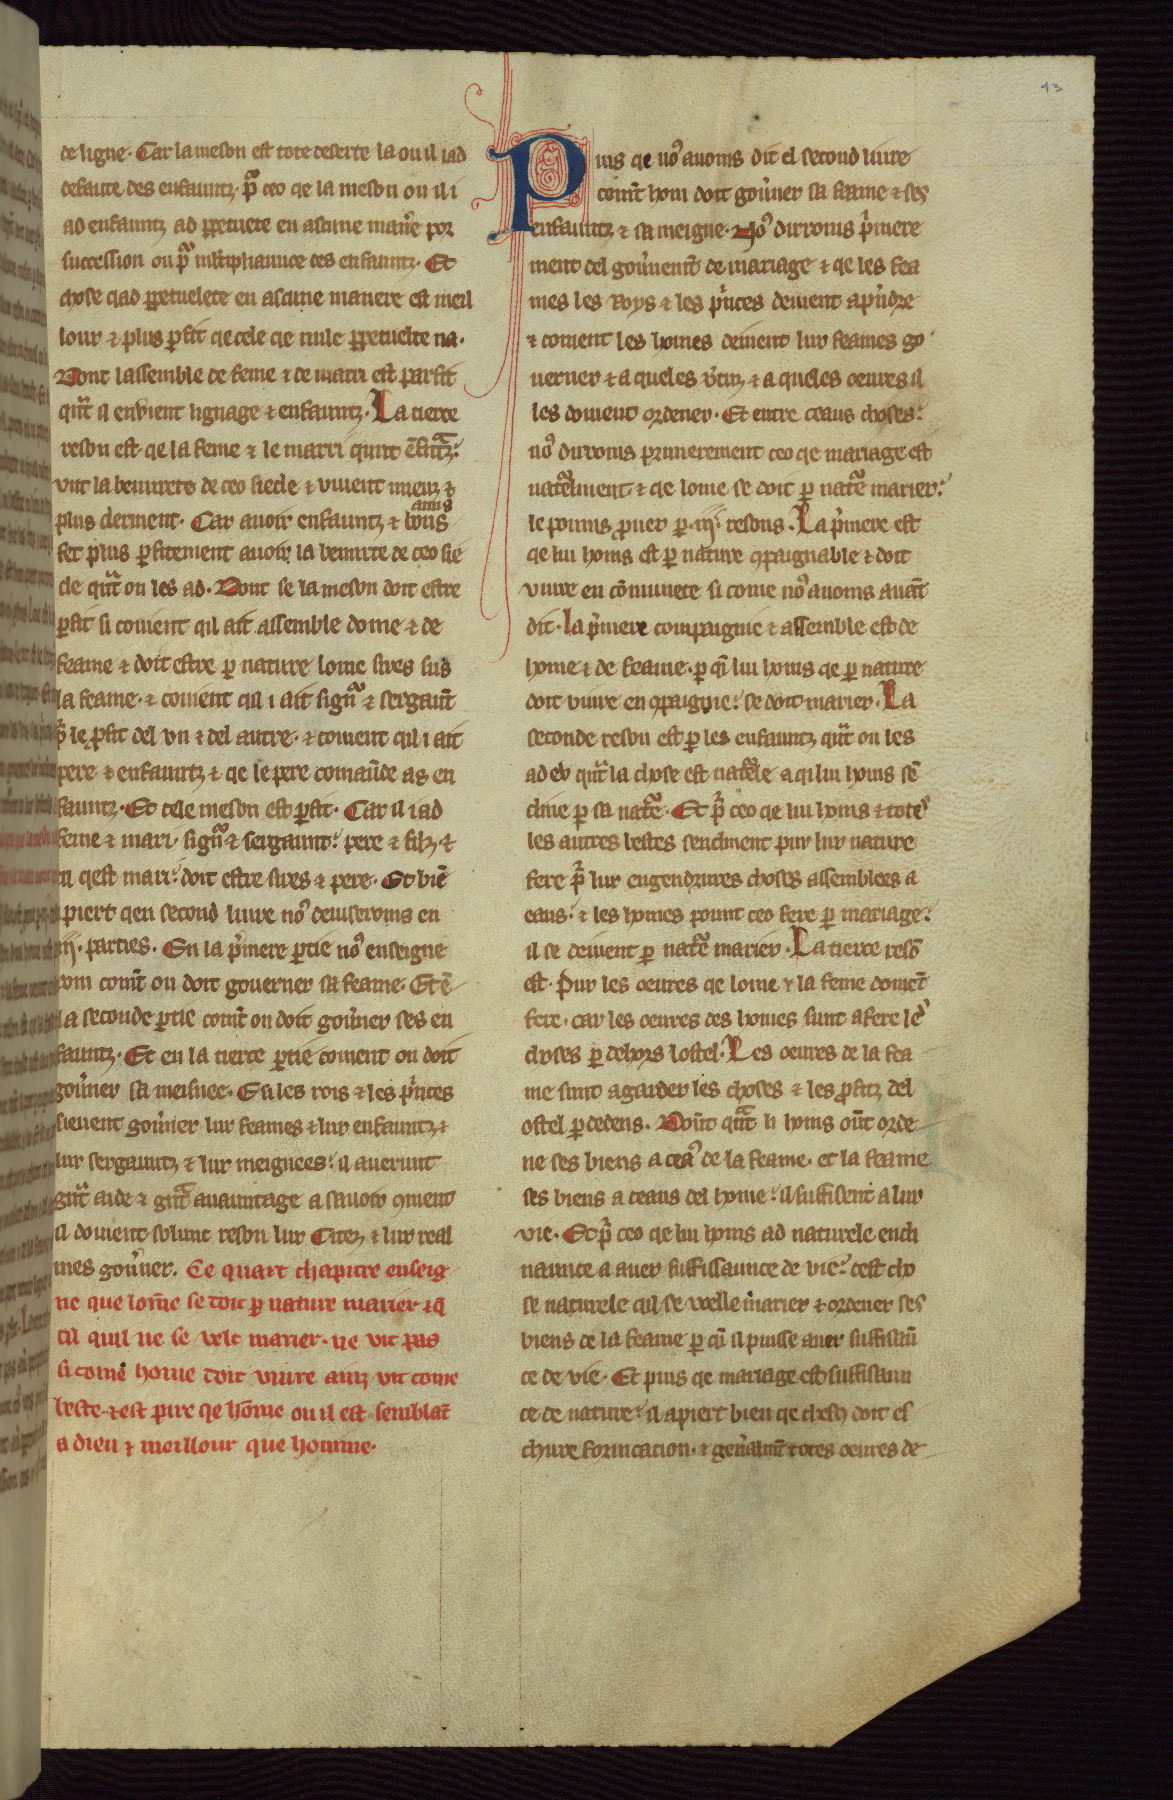 43
de ligne. Car la meson est tote deserte la ou il iad
defaute des enfauntz. p̃ ceo qe la meson ou il i
ad enfauntz ad ꝑpetuete en ascune man̾e por
succession ou p̃ ml̃tipliaunce des enfauntz. Et
chose qad ꝑpetuelete en ascune manere est meil
lour ⁊ plus ꝑfit qe cele qe nule ꝑpetuelte na.
Dont lassemble de feme ⁊ de mari est parfit
qñt il envient lignage ⁊ enfauntz. La tierce
reson est qe la feme ⁊ le marri qunt
vnt la beneurete de ceo siecle ⁊ vivent mieuz ⁊
plus clerment. Car avoir enfauntz ⁊ bons amis
fet plus ꝑfitement avoir la beneurte de ceo sie
cle qñt on les ad. Dont se la meson doit estre
ꝑfit si covient qil ait assemble dome ⁊ de
feame ⁊ doit estre ꝑ nature lome sires sus
la feame. ⁊ covient qil i ait sign̾ ⁊ sergaunt
p̃ le ꝓfit del vn ⁊ del autre. ⁊ covient qil i ait
pere ⁊ enfauntz ⁊ qe le pere comaũde as en
fauntz. Et cele meson est ꝑfit. Car il i ad
feme ⁊ mari. sign̾ ⁊ sergaunt. pere ⁊ filz ⁊
il qest mari. doit estre sires ⁊ pere. Et biẽ
apiert qen second livre no9 deviseroms en
iij. parties. En la p̾mere ꝑtie no9 enseigne
rom comẽt on doit governer sa feame. Et ẽ
la seconde ꝑtie comẽt on doit go̾ner ses en
fauntz. Et en la tierce ꝑtie coment on doit
go̾ner sa meisnee. Si les rois ⁊ les p̾nces
sievent go̾ner lur feames ⁊ lur enfauntz ⁊
lur sergauntz ⁊ lur meignees. il averunt
gñt aide ⁊ gñt avauntage a savoir coment
il doivent solunc reson lur Citez ⁊ lur real
mes go̾ner. Ce quart chapitre enseig
ne que lom̃e se doit ꝑ nature marier ⁊ q̃
cil quil ne se velt marier. ne vit pas
si comẽ home doit vivre ainz vit come
beste. ⁊ est pire qe hom̃e ou il est semblãt
a dieu ⁊ meillour que homme.
Puis qe no9 avoms dit el second livre
comẽt hom doit go̾ner sa feame ⁊ ses
enfauntz ⁊ sa meigne. No9 dirroms p̾mere
ment del go̾nemẽt de mariage ⁊ qe les fea
mes les Roys ⁊ les p̾nces deivent apñdre
⁊ coment les homes deivent lur feames go
verner ⁊ a queles v̾tuz ⁊ a queles oevres il
les doivent ordener. Et entre ceaus choses.
no9 dirroms primerement ceo qe mariage est
nat̾elment ⁊ qe lome se doit ꝑ nat̾e marier.
le poums ꝓver ꝑ. iij. resons. La p̾mere est
qe lui homs est ꝑ nature ꝯpaignable ⁊ doit
vivre en cõmunete si come no9 avoms avãt
dit. la p̾mere compaignie ⁊ assemble est de
home ⁊ de feame. ꝑ qi lui homs qe ꝑ nature
doit vivre en ꝯpaignie. se doit marier. La
seconde reson est ꝑ les enfauntz qñt on les
ad ev qñt la chose est nat̾ele a qi lui homs sẽ
cline ꝑ sa nat̾e. Et p̃ ceo qe lui homs ⁊ totes
les autres bestes senclinent pur lur nature
fere p̃ lur engendrures choses assemblees a
eaus. ⁊ les homes pount ceo fere ꝑ mariage.
il se deivent ꝑ nat̾e marier. La tierce resõ
est. Pur les oevres qe lome ⁊ la feme doivẽt
fere. car les oevres des homes sunt a fere les
choses ꝑ dehors lostel. Les oevres de la fea
me sunt a garder les choses ⁊ les ꝓfitz del
ostel ꝑ dedens. Doñt qñt li homs oũt orde
ne ses biens a cea9 de la feame. et la feame
ses biens a ceaus del home. il suffisent a lur
vie. Et p̃ ceo qe lui homs ad naturele encli
naunce a aver suffissaunce de vie. cest cho
se naturele qil se voelle marier ⁊ ordener ses
biens de la feame ꝑ qi il puisse aver suffisaũ
ce de vie. Et puis qe mariage est suffisaun
ce de nature. il apiert bien qe chescũ doit es
chure fornicacion. ⁊ gen̾alment totes oevres de